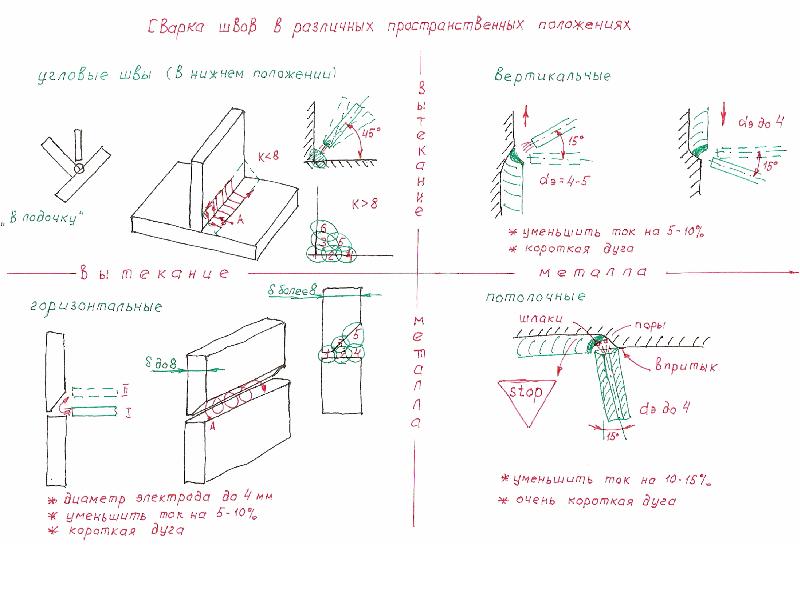 Сварка швов в различных пространственных положениях
угловые швы (в нижнем положении)
45°
К<8
А
„в лодочку"
К>8
6
3 5
1 2 4
вертикальные
15°
dэ=4-5
dэ до 4
15°
* уменьшить ток на 5-10%
* короткая дуга
вытекание металла
вытекание металла
горизонтальные
δ более 8
δ до 8
5
1 3 4
II
I
А
* диаметр электрода до 4 мм
* уменьшить ток на 5-10%
* короткая дуга
потолочные
шлаки
поры
впритык
stop
dэ до 4
15°
* уменьшить ток на 10-15%
* очень короткая дуга